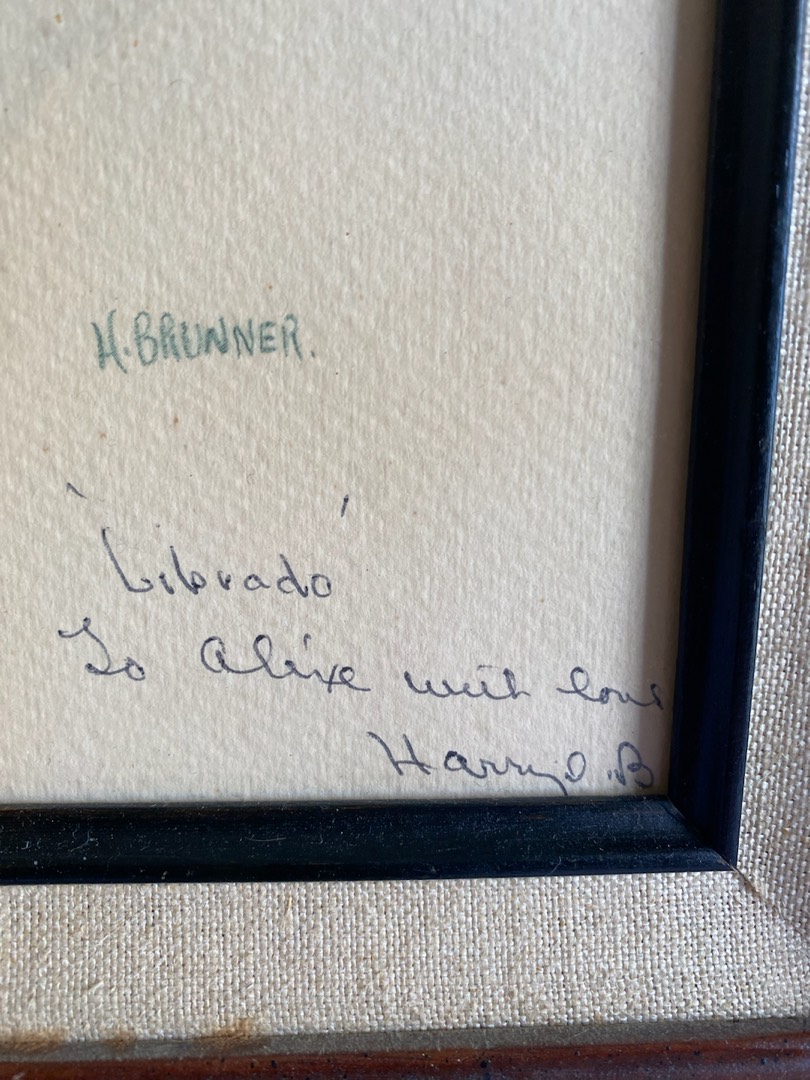 H. BRUNNER.
'Librado'
To Alixe with love
Harry O. B